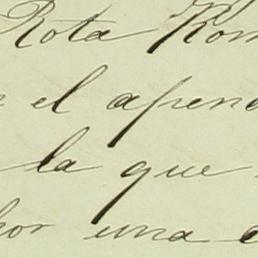 Rota Rom
el apen
la que
por una